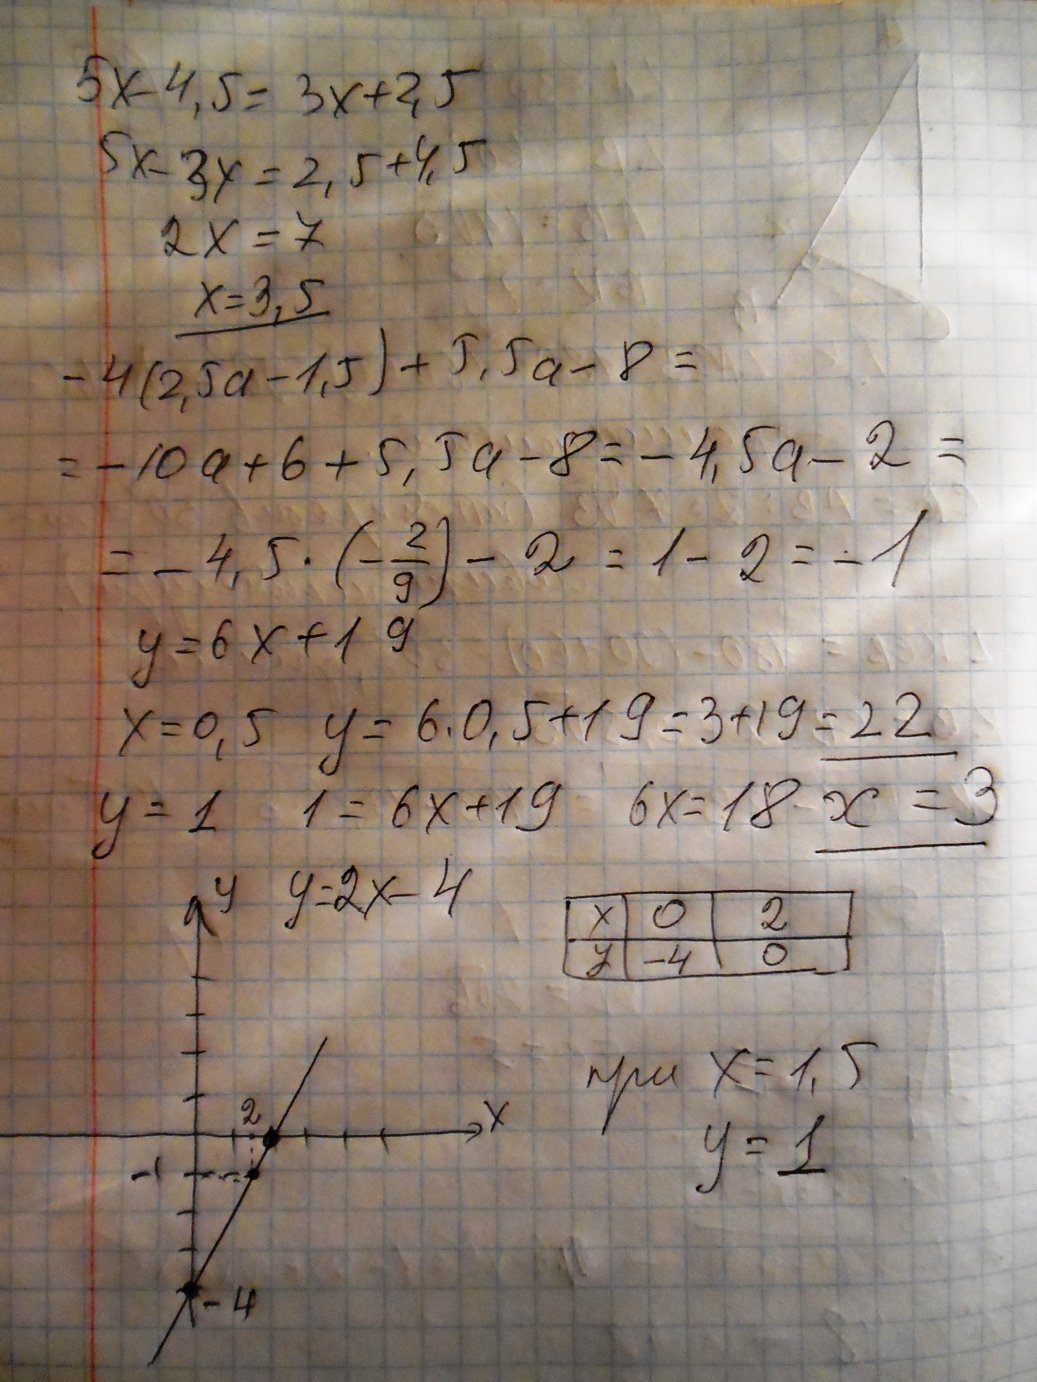 5x-4,5=3x+2,5
5x-3x=2,5+4,5
2x=7
x=3,5
-4(2,5a-1,5)+5,5a-8=
=-10a+6+5,5a-8=-4,5a-2=
=-4,5·(-2/9)-2=1-2=-1
y=6x+19
x=0,5 y=6·0,5+19=3+19=22
y=1 1=6x+19 6x=18 x=3
y y=2x-4
x 0 2
y -4 0
при x=1,5
y=1
2 x
-1
-4